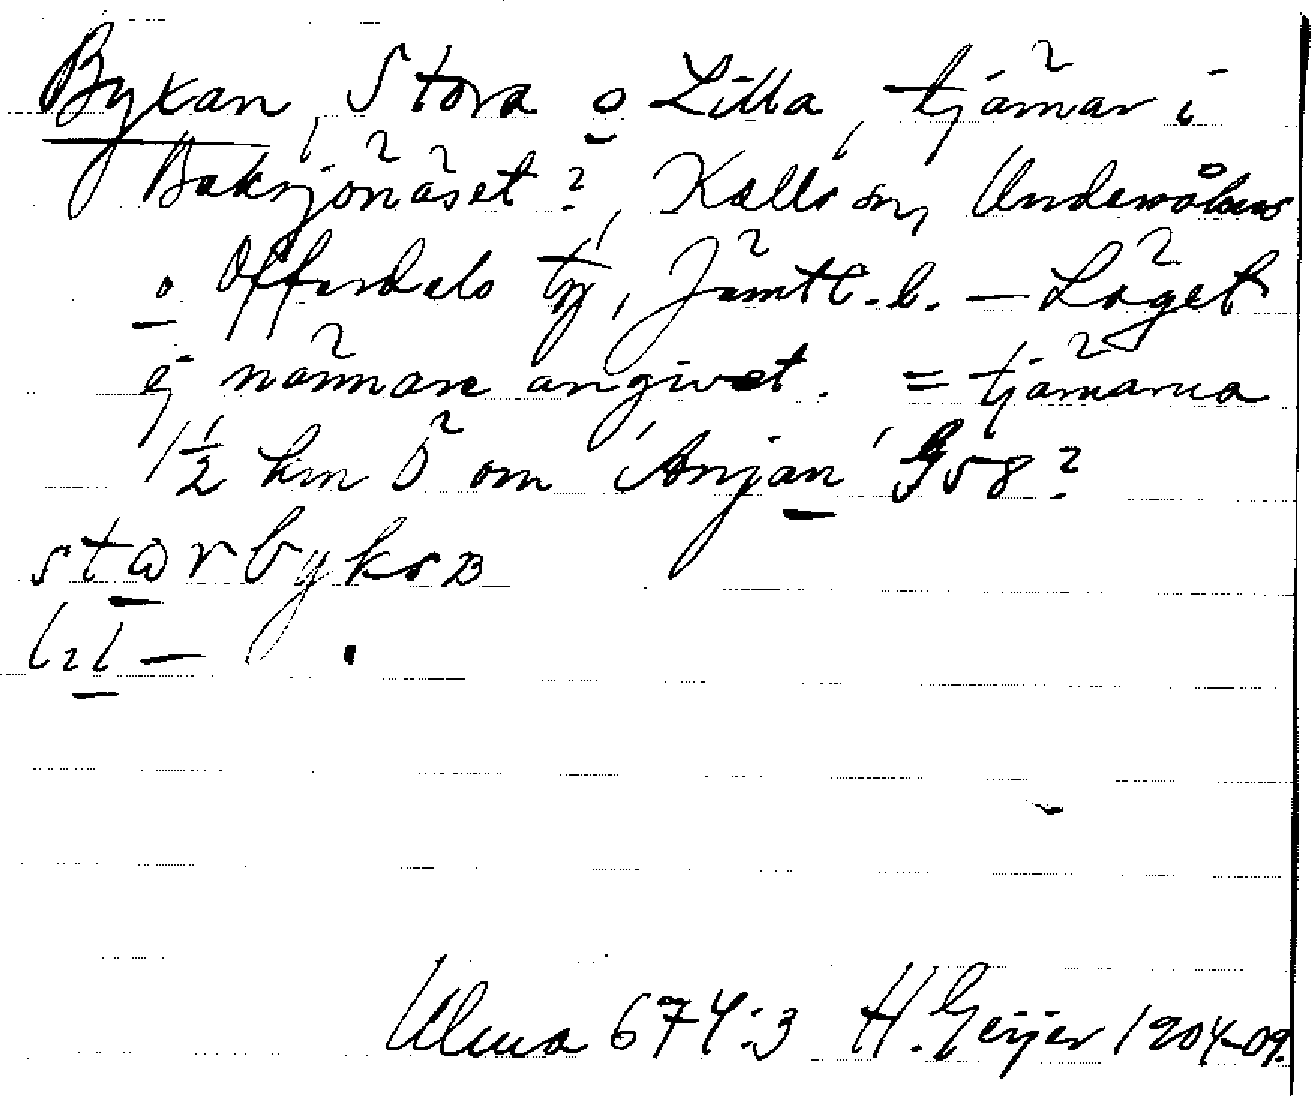 Bykan, Stora o Lilla, tjärnar i
Baksjönäset?, Kalls sn, Undersåkers
o Offerdals tg, Jämtl. l. — Läget
ej närmare angivet. = tjärnarna
1½ km Ö om 'Anjan' G58?
Ulma 674:3 H. Geijer 1904-09.